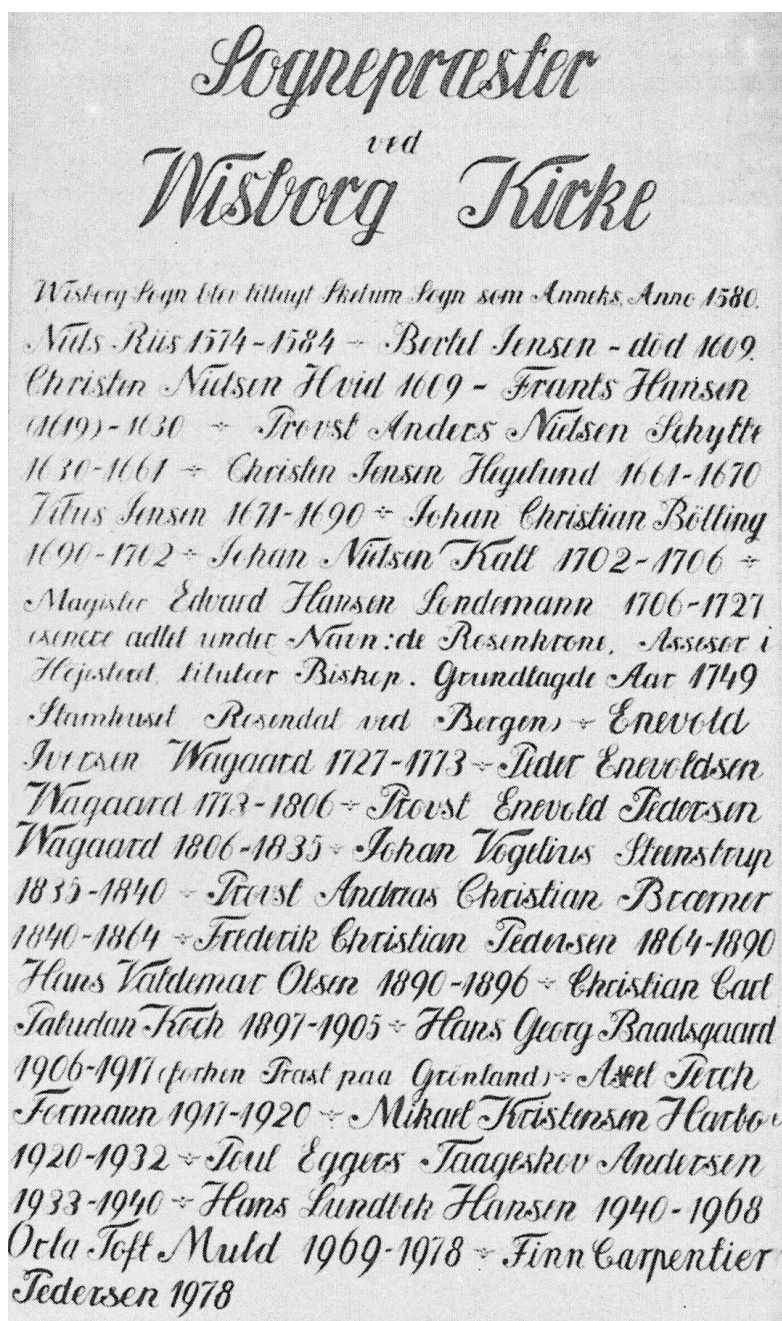 Sognepræster
ved
Wisborg Kirke
Wisborg Sogn blev tillagt Skelum Sogn som Anneks, Anno 1580.
Niels Riis 1574-1584 ÷ Bertel Jensen - död 1609.
Christen Nielsen Hvid 1609 - Frants Hansen
(1619)-1630 ÷ Provst Anders Nielsen Schytte
1630-1661 ÷ Christen Jensen Hegelund 1661-1670
Vitus Jensen 1671-1690 ÷ Johan Christian Bölling
1690-1702 ÷ Johan Nielsen Kall 1702-1706 ÷
Magister Edvard Hansen Londemann 1706-1727
senere adlet under Navn: de Rosenkrone, Assesor i
Højesteret, tituleer Biskop. Grundlagde Aar 1749
Stamhuset Rosendal ved Bergen) ÷ Enevold
Iversen Wagaard 1727-1773 ÷ Peder Enevoldsen
Wagaard 1773-1806 ÷ Provst Enevold Pedersen
Wagaard 1806-1835 ÷ Johan Vogelius Steenstrup
1835-1840 ÷ Provst Andreas Christian Bræmer
1840-1864 ÷ Frederik Christian Pedersen 1864-1890
Hans Valdemar Olsen 1890-1896 ÷ Christian Carl
Paludan Koch 1897-1905 ÷ Hans Georg Baadsgaard
1906-1917 (forhen Præst paa Grönland) ÷ Axel Perch
Formann 1917-1920 ÷ Mikael Kristensen Harboe
1920-1932 ÷ Poul Eggers Taageskov Andersen
1933-1940 ÷ Hans Lundbek Hansen 1940-1968
Orla Toft Muld 1969-1978 ÷ Finn Carpentier
Pedersen 1978